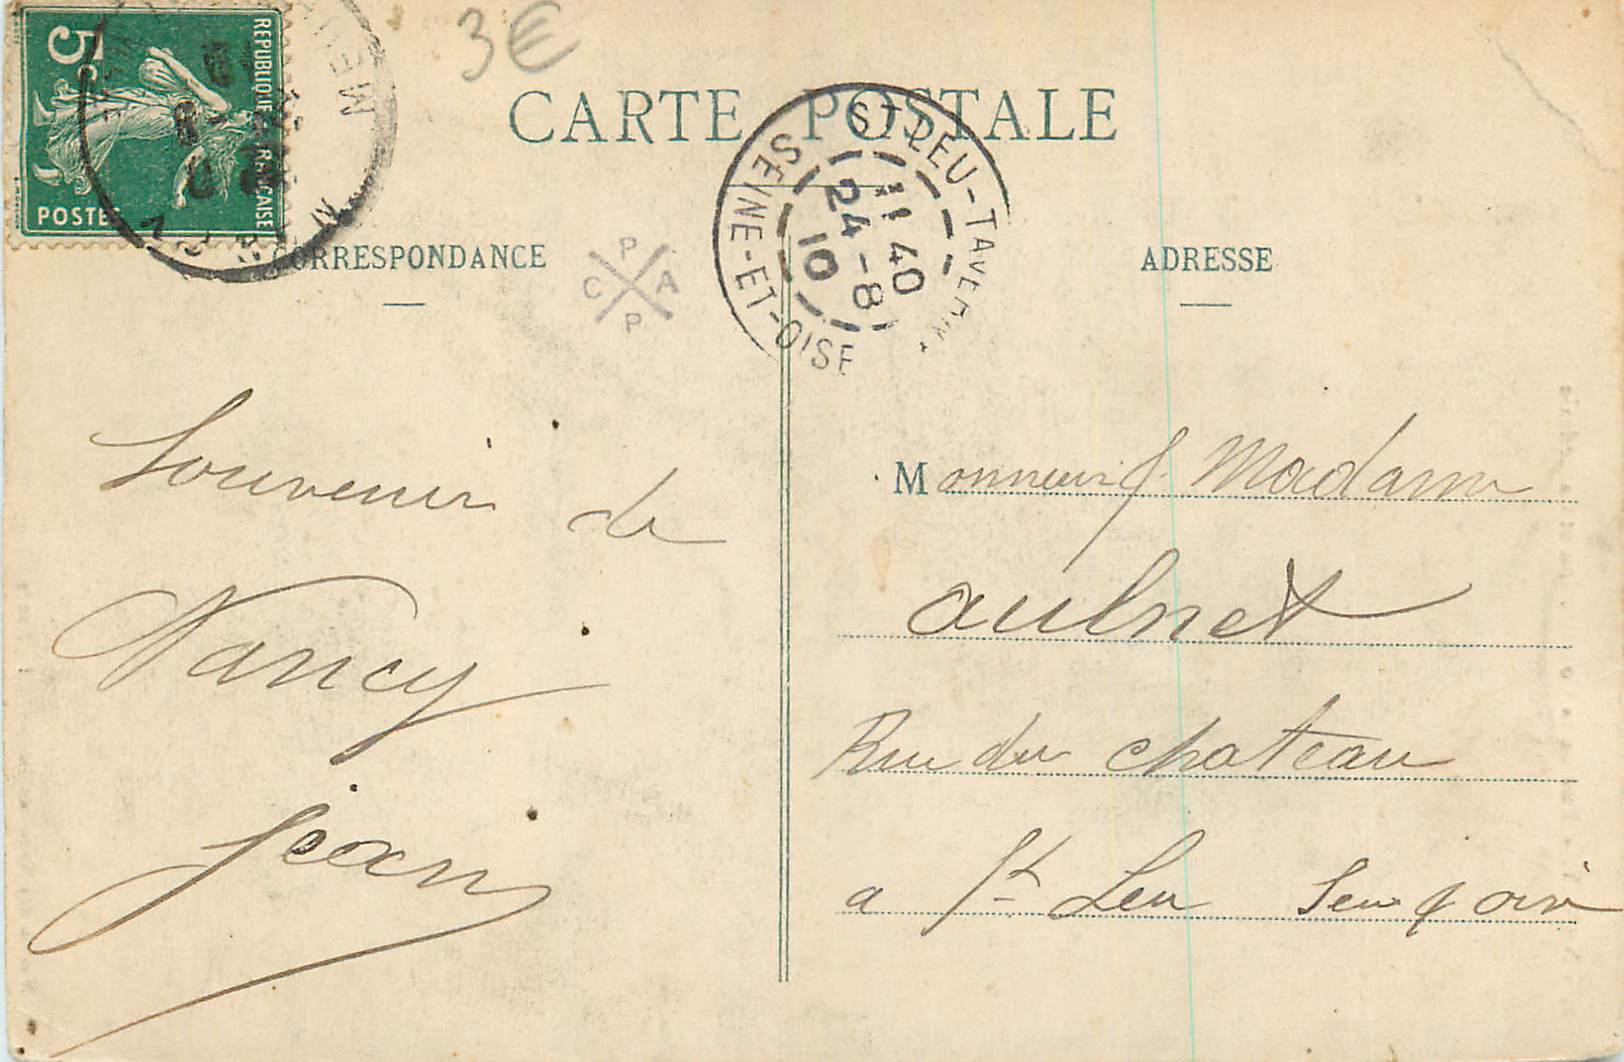 3€
5c
REPUBLIQUE FRANCAISE
POSTES
CARTE POSTALE
ST LEU-TAVERNY
SEINE-ET-OISE
11 40
24-8
10
CORRESPONDANCE
P
C A
P
ADRESSE
Souvenir de
Nancy
Jean
Monsieur & Madame
aulnet
Rue du chateau
a St Leu Seine & oise